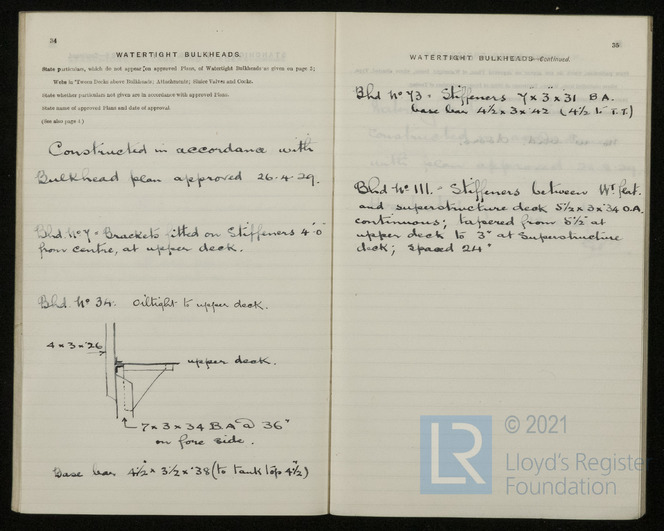 34
WATERTIGHT BULKHEADS.
State particulars, which do not appear on approved Plans, of Watertight Bulkheads as given on page 5;
Webs in 'Tween Decks above Bulkheads; Attachments; Sluice Valves and Cocks.
State whether particulars not given are in accordance with approved Plans.
State name of approved Plans and date of approval.
(See also page 4.)
Constructed in accordance with
Bulkhead plan approved 26.4.29.
Bhd. No 7 - Brackets fitted on Stiffeners 4'-0"
from centre, at upper deck.
Bhd. No 34. Oiltight to upper deck.
4 x 3 x .26
upper deck.
7 x 3 x .34 B A @ 36"
on fore side.
Base bar 4½" x 3½ x .38 (to tank top 4½")
35
WATERTIGHT BULKHEADS—Continued.
Bhd No 73 - Stiffeners 7 x 3 x .31 B.A.
base bar 4½ x 3 x .42 (4½ to T.T.)
Bhd No 111. - Stiffeners between Wr flat.
and superstructure deck 5½ x 3 x .34 O.A.
continuous; tapered from 5½" at
upper deck to 3" at Superstructure
deck; spaced 24"
LR
© 2021
Lloyd's Register
Foundation